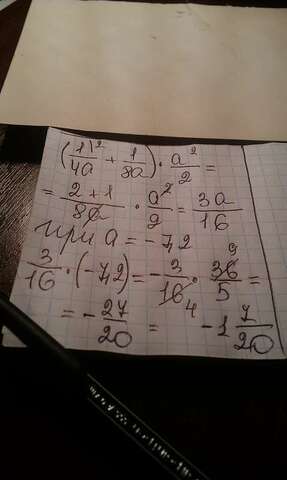 (1/4a \2 + 1/8a) · a²/2 =
= 2+1/8a · a²/2 = 3a/16
при a = -7,2
3/16 · (-7,2) = -3/16 4 · 36 9/5 =
= -27/20 = -1 7/20